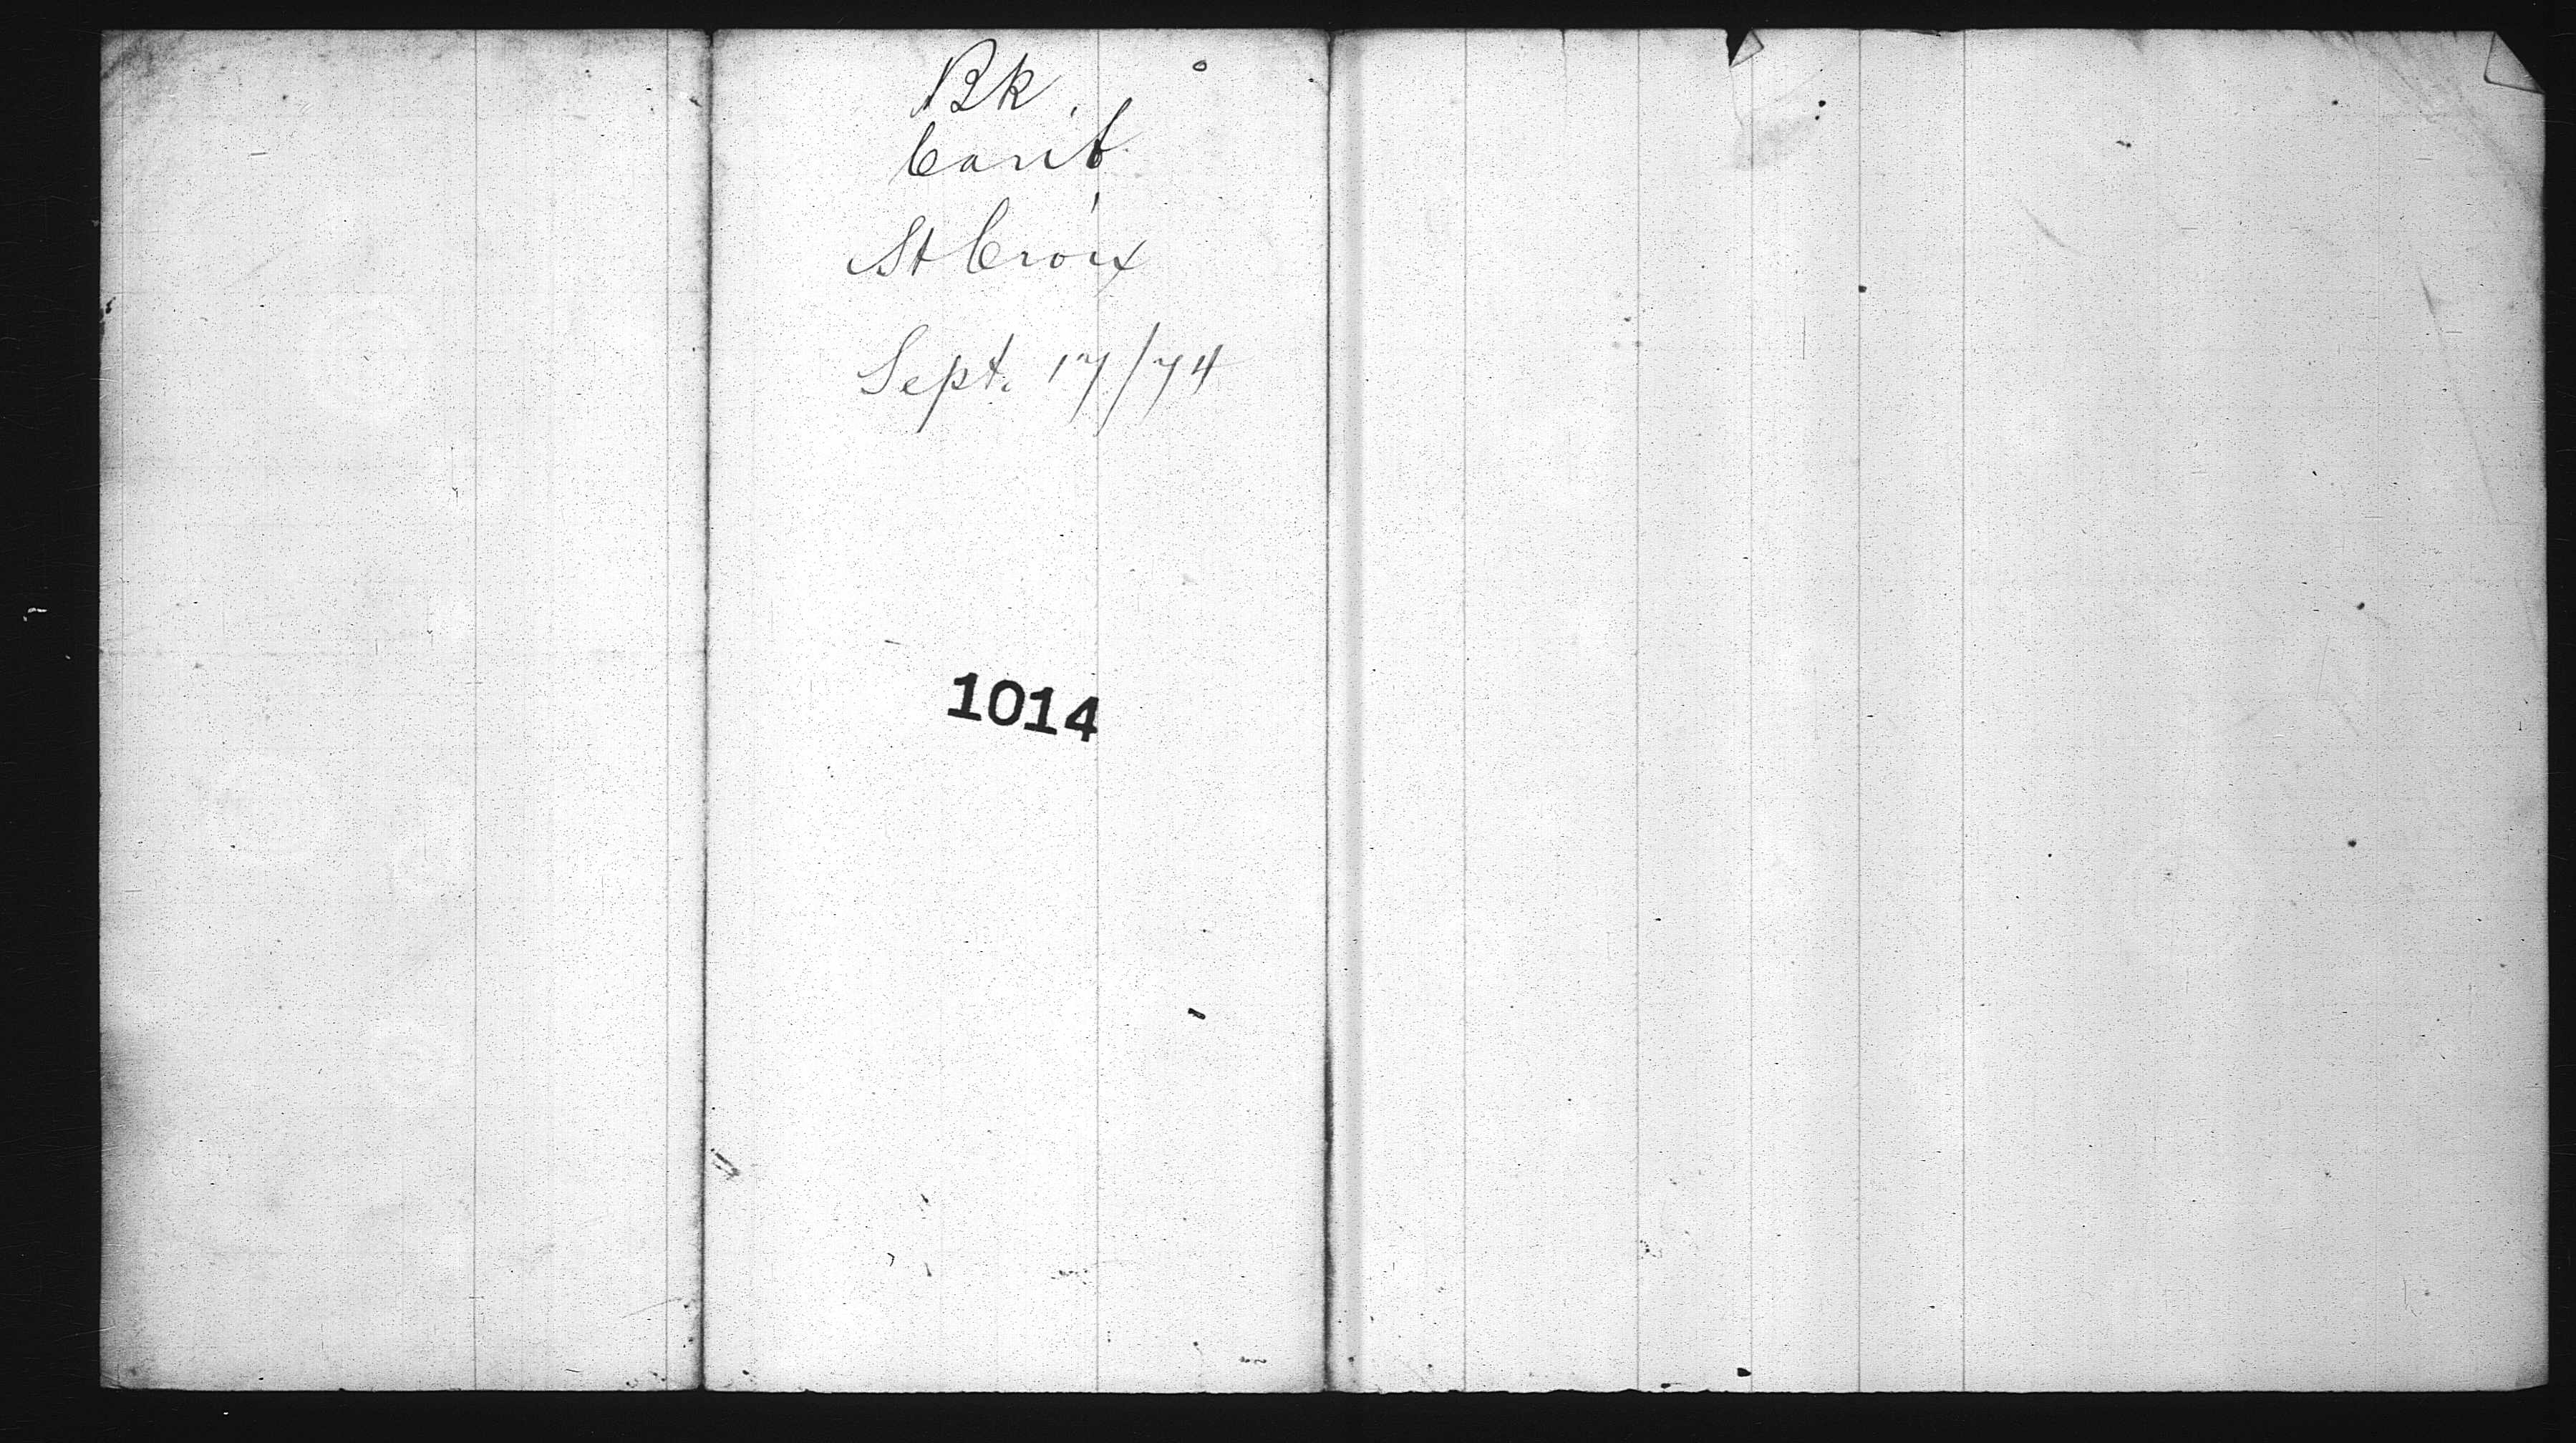 Bk
Carib
St Croix
Sept. 17/74
1014